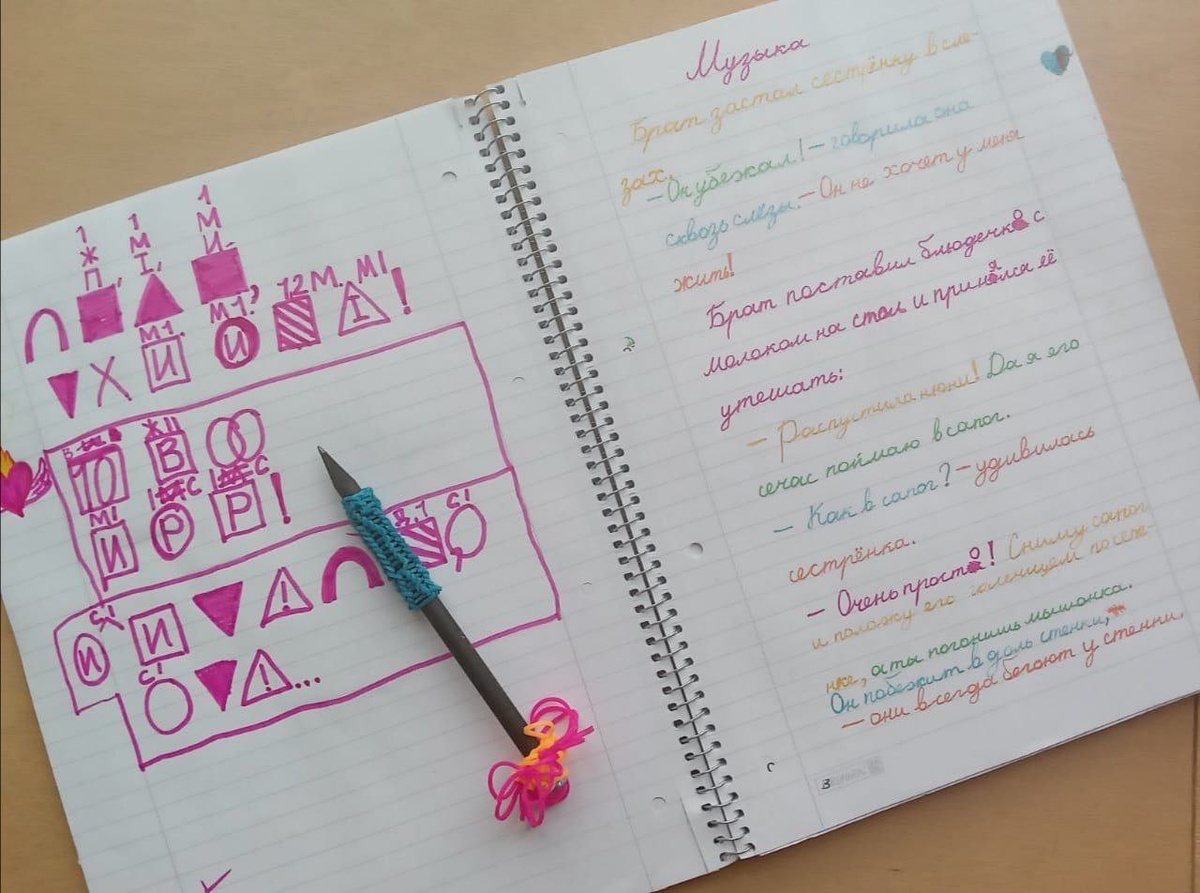 1 1 1
Ж М М
П, I, И.
12М. М1
М1. М1.
И И I !
В Ж П
10 В
М1 С С
И Р Р !
С!
С! И !
И
С! ! ...
Музыка
Брат застал сестрёнку в сле-
зах.
– Он убежал! – говорила она
сквозь слёзы. – Он не хочет у меня
жить!
Брат поставил блюдечко с
молоком на стол и принялся её
утешать:
– Распустила нюни! Да я его
сечас поймаю в сапог.
– Как в сапог? – удивилась
сестрёнка.
– Очень просто! Сниму сапог
и положу его голенищем по сте-
нке, а ты погонишь мышонка.
Он побежит в доль стенки,
– они всегда бегают у стенки,
3